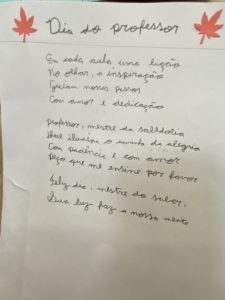 Dia do professor
Em cada aula, uma lição
No olhar, a inspiração
Guiam nossos passos
Com amor e dedicação
Professor, mestre da sabedoria
Que ilumina o caminho da alegria
Com paciência e com amor
Peço que me ensine por favor
Feliz dia, mestre do saber,
Sua luz faz a nossa mente